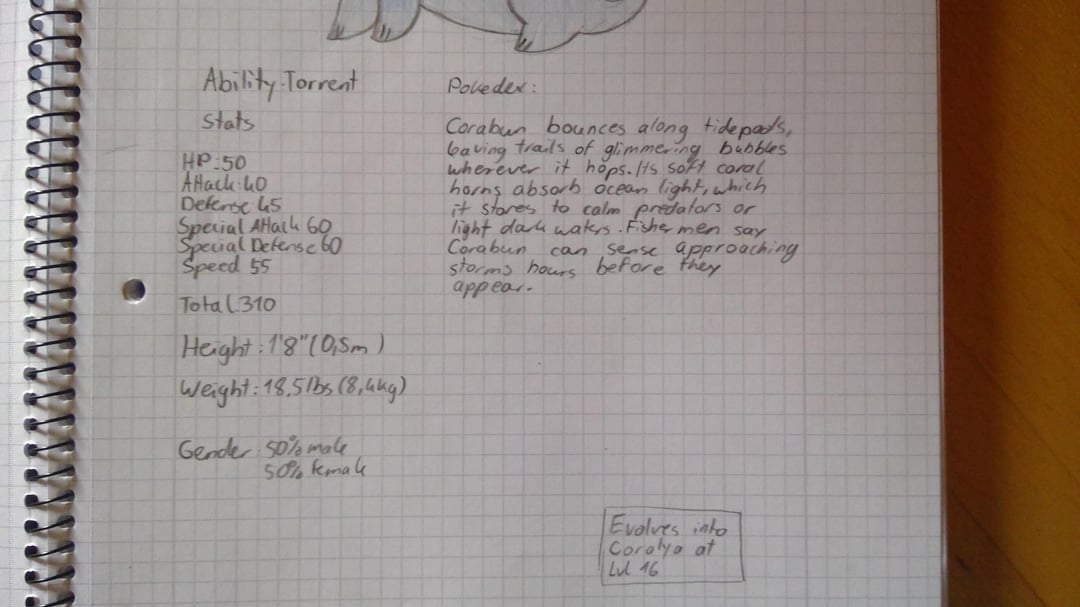 Ability:Torrent
Stats
HP:50
Attack:40
Defense 45
Special Attack 60
Special Defense 60
Speed 55
Total:310
Height: 1'8" (0,5m)
Weight: 18,5lbs (8,4kg)
Gender: 50% male
50% female
Pokedex:
Corabun bounces along tidepools,
leaving trails of glimmering bubbles
wherever it hops. Its soft coral
horns absorb ocean light, which
it stores to calm predators or
light dark waters. Fishermen say
Corabun can sense approaching
storms hours before they
appear.
Evolves into
Coralyo at
Lvl 16